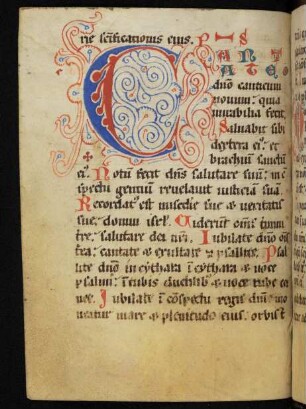 rie sc̄ificationis eius. P S
CANT
ATE
dn̄o canticum
nouum: quia
mirabilia fecit.
Saluabit sibi
dextera ei᷒. et
brachiū sanctū
ei᷒. Notū fecit dn̄s salutare suū: in c̄
spectu gentiū reuelauit iusticiā suā.
Recordat᷒ est mis̄cdie sue et ueritatis
sue: domui isr̄l. Uiderunt om̄s t̄mini
tr̄e: salutare dei nr̄i. Iubilate dn̄o om̄s
t̄ra: cantate et exultate et psallite. Psal
lite dn̄o in cythara ī cythara et uoce
psalmi: ī tubis ductilib᷒ et uoce tube cor
nee. Iubilate ī c̄spectu regis dn̄i: mo
ueatur mare et plenitudo eius: orbis t̄